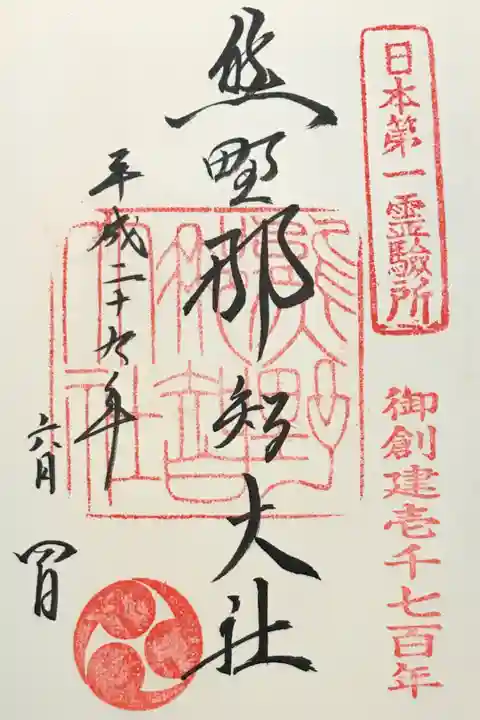 日本第一霊験所
御創建壱千七百年
熊野那智大社
平成二十九年
六月
四日